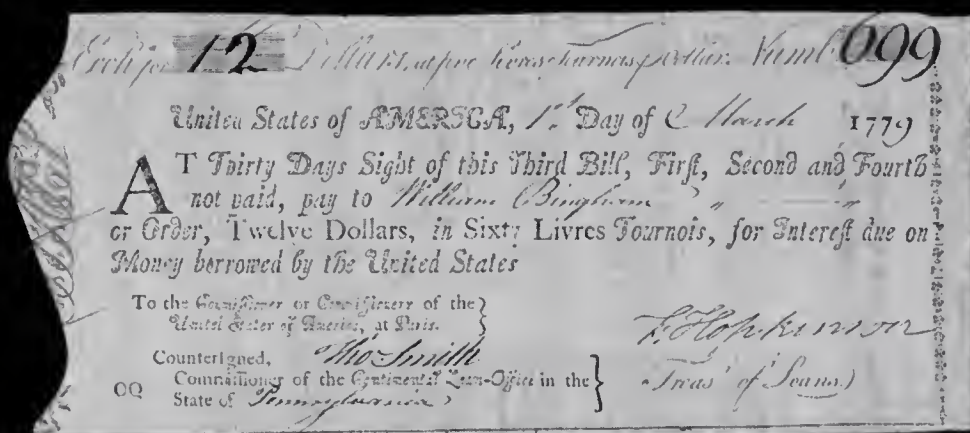 Exch for 12 Dollars, at five Livres Tournois per Dollar. Numb 699
United States of AMERICA, 1st Day of March 1779
AT Thirty Days Sight of this Third Bill, First, Second and Fourth
not paid, pay to William Bingham
or Order, Twelve Dollars, in Sixty Livres Tournois, for Interest due on
Money borrowed by the United States
To the Commissioner or Commissioners of the
United States of America, at Paris.
F Hopkinson
Treasr of Loans
Counterigned, Tho Smith
OQ Commissioner of the Continental Loan-Office in the
State of Pennsylvania